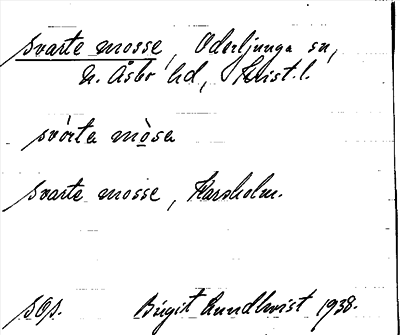 svarte mosse, Oderljunga sn,
N. Åsbo hd, Krist. l.
svò́rta mòsa
svarte mosse, Karsholm.
sOp. Birgit Lundkvist 1938.